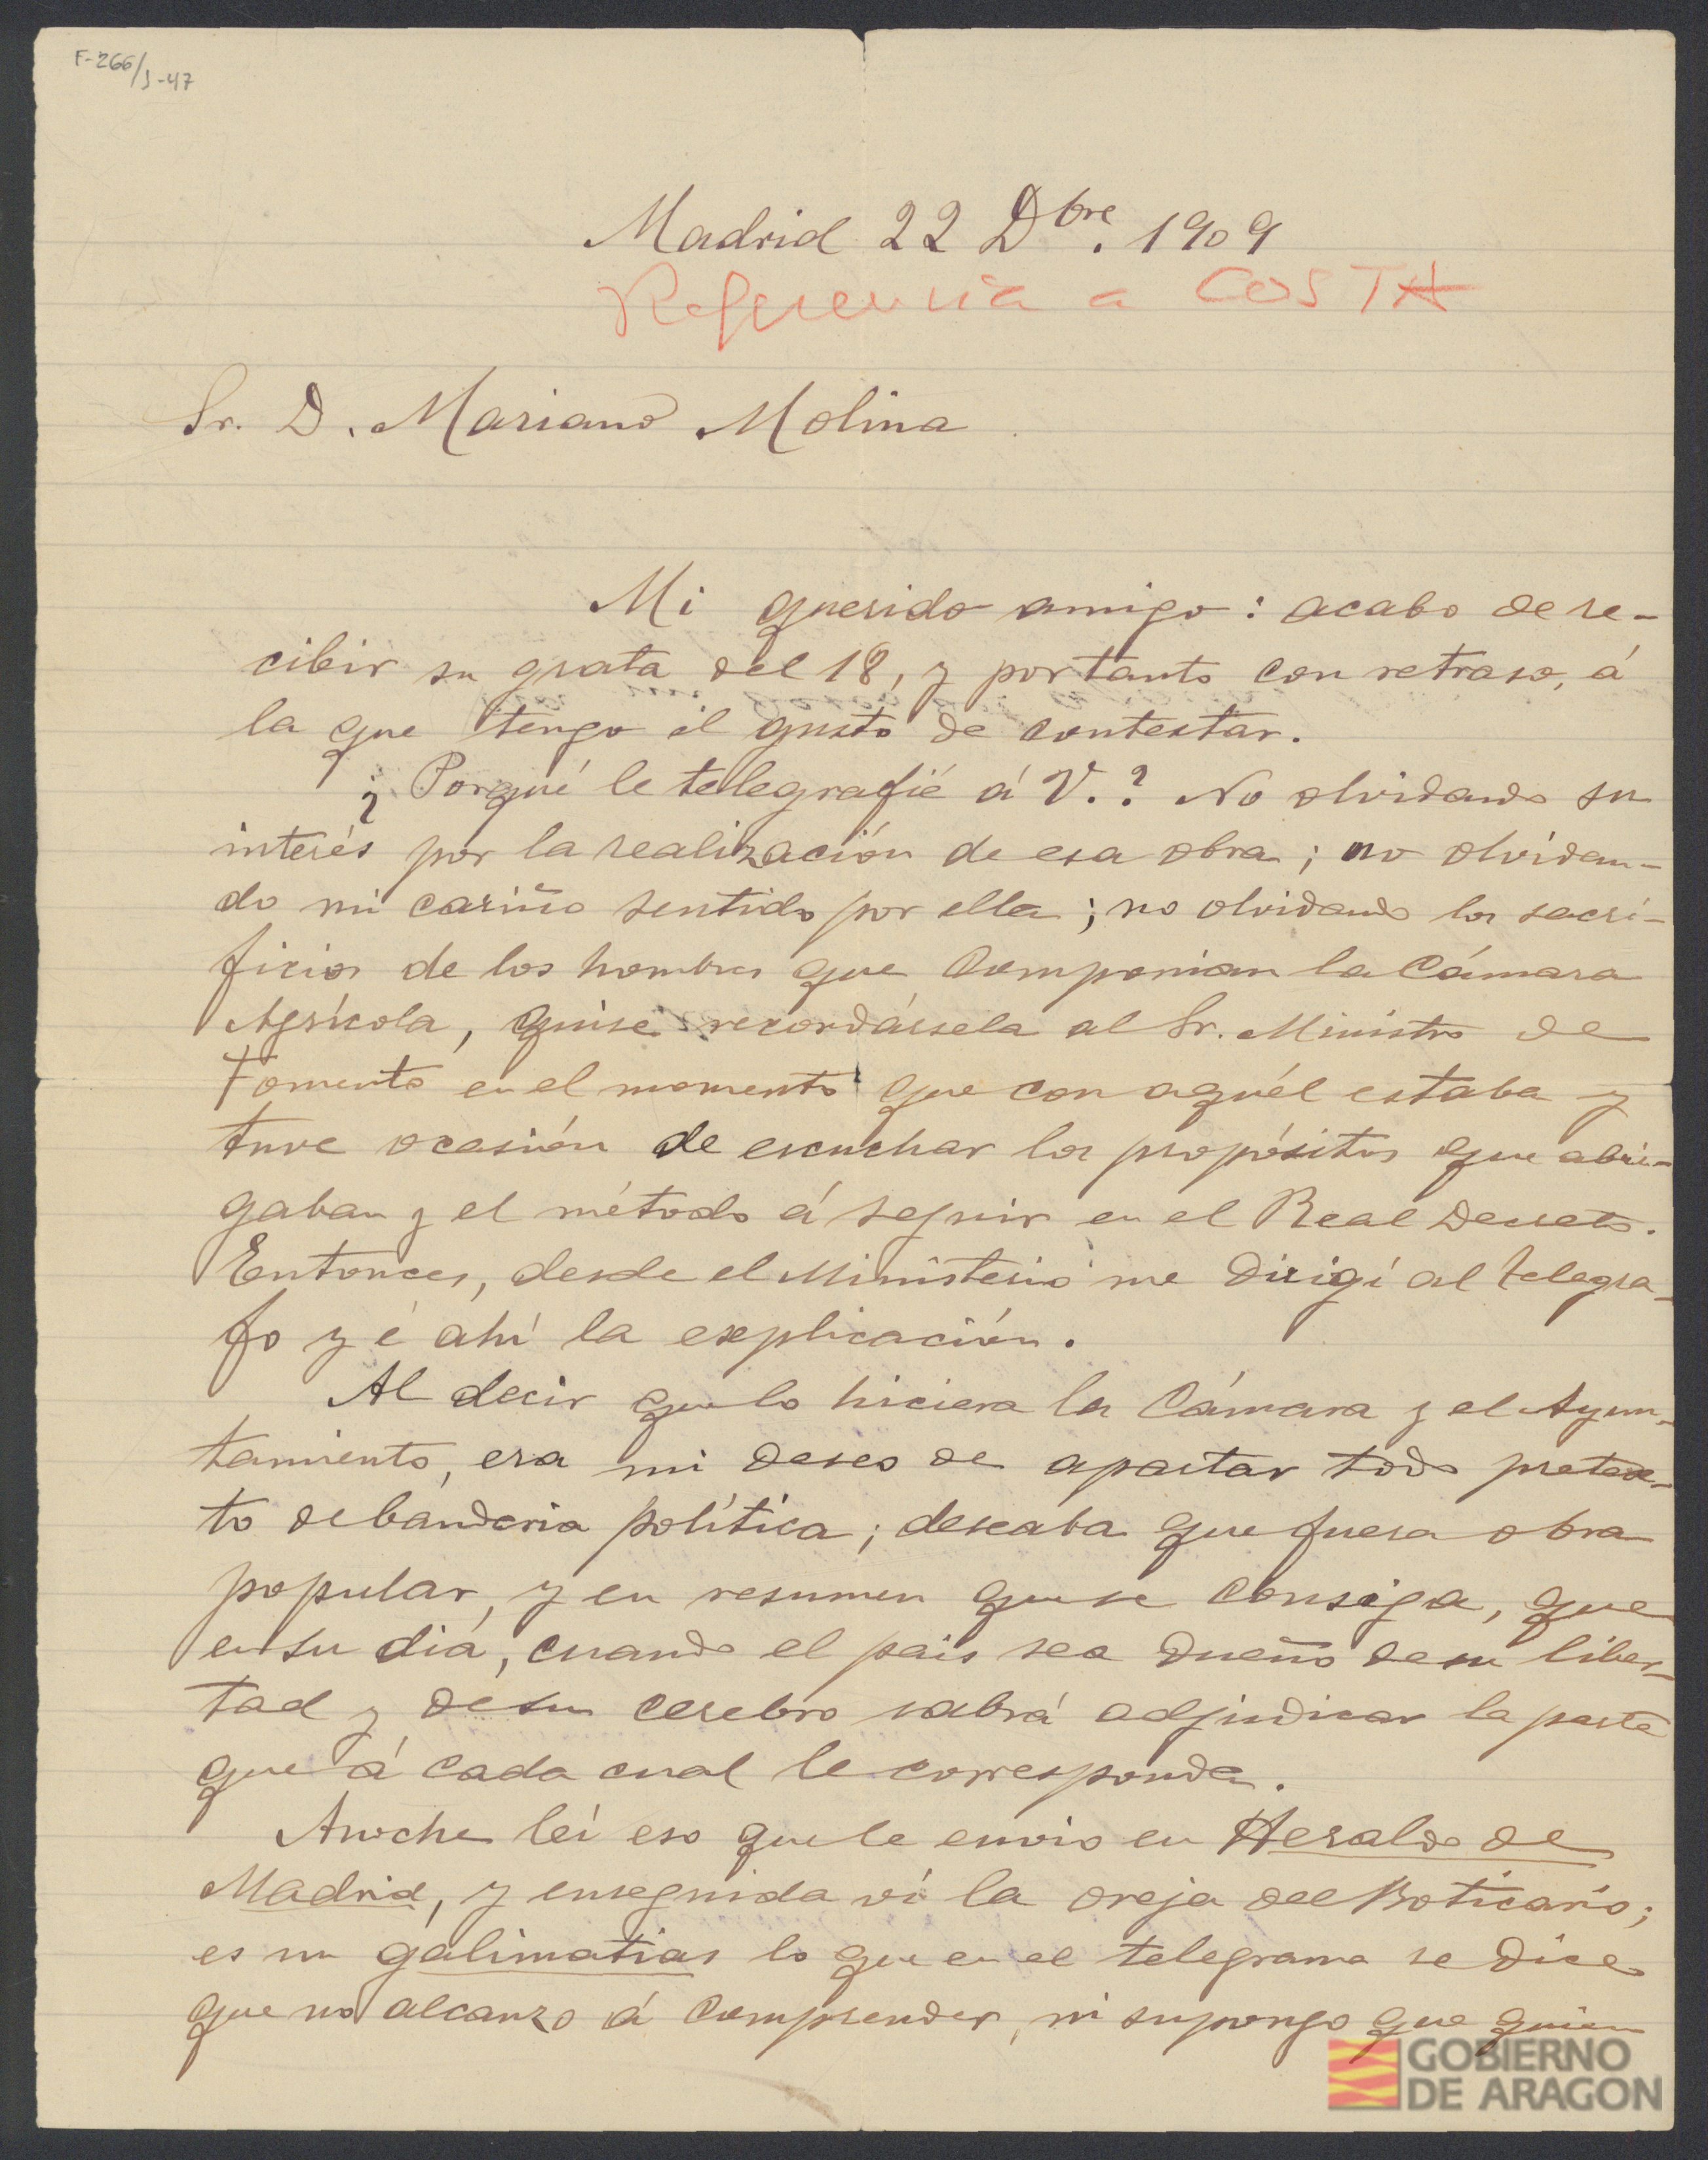 F-266/J-47
Madrid 22 Dbre. 1909
Referencia a COSTA
Sr. D. Mariano Molina
Mi querido amigo: acabo de re-
cibir su grata del 18, y por tanto con retraso, á
la que tengo el gusto de contestar.
¿Porqué le telegrafié á V.? No olvidando su
interés por la realización de esa obra; no olvidan-
do mi cariño sentido por ella; no olvidando los sacri-
ficios de los hombres que componian la Cámara
Agrícola, quise recordársela al Sr. Ministro de
Fomento en el momento que con aquél estaba y
tuve ocasión de escuchar los propósitos que abri-
gaban y el método á seguir en el Real Decreto.
Entonces, desde el Ministerio me dirigí al telegra-
fo y é ahí la explicación.
Al decir que lo hiciera la Cámara y el Ayun-
tamiento, era mi deseo de apartar todo pretex-
to de banderia política; deseaba que fuera obra
popular, y en resumen que se consiga, que
en su dia, cuando el pais sea dueño de su liber-
tad y de su cerebro sabrá adjudicar la parte
que á cada cual le corresponda.
Anoche leí eso que le envio en Heraldo de
Madrid, y enseguida ví la oreja del Boticario;
es un galimatias lo que en el telegrama se dice
que no alcanzo á comprender, ni supongo que quien
GOBIERNO
DE ARAGON